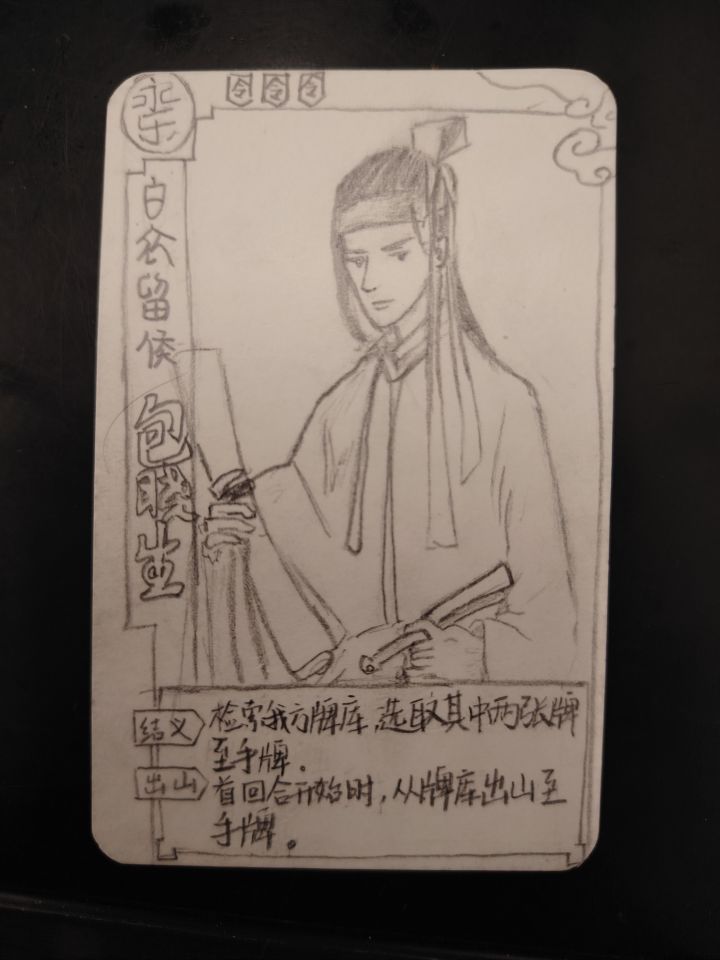 永乐
令令令
白衣留侯
包晓生
结义 检索我方牌库,选取其中两张牌
至手牌.
出山 首回合开始时,从牌库出山至
手牌。